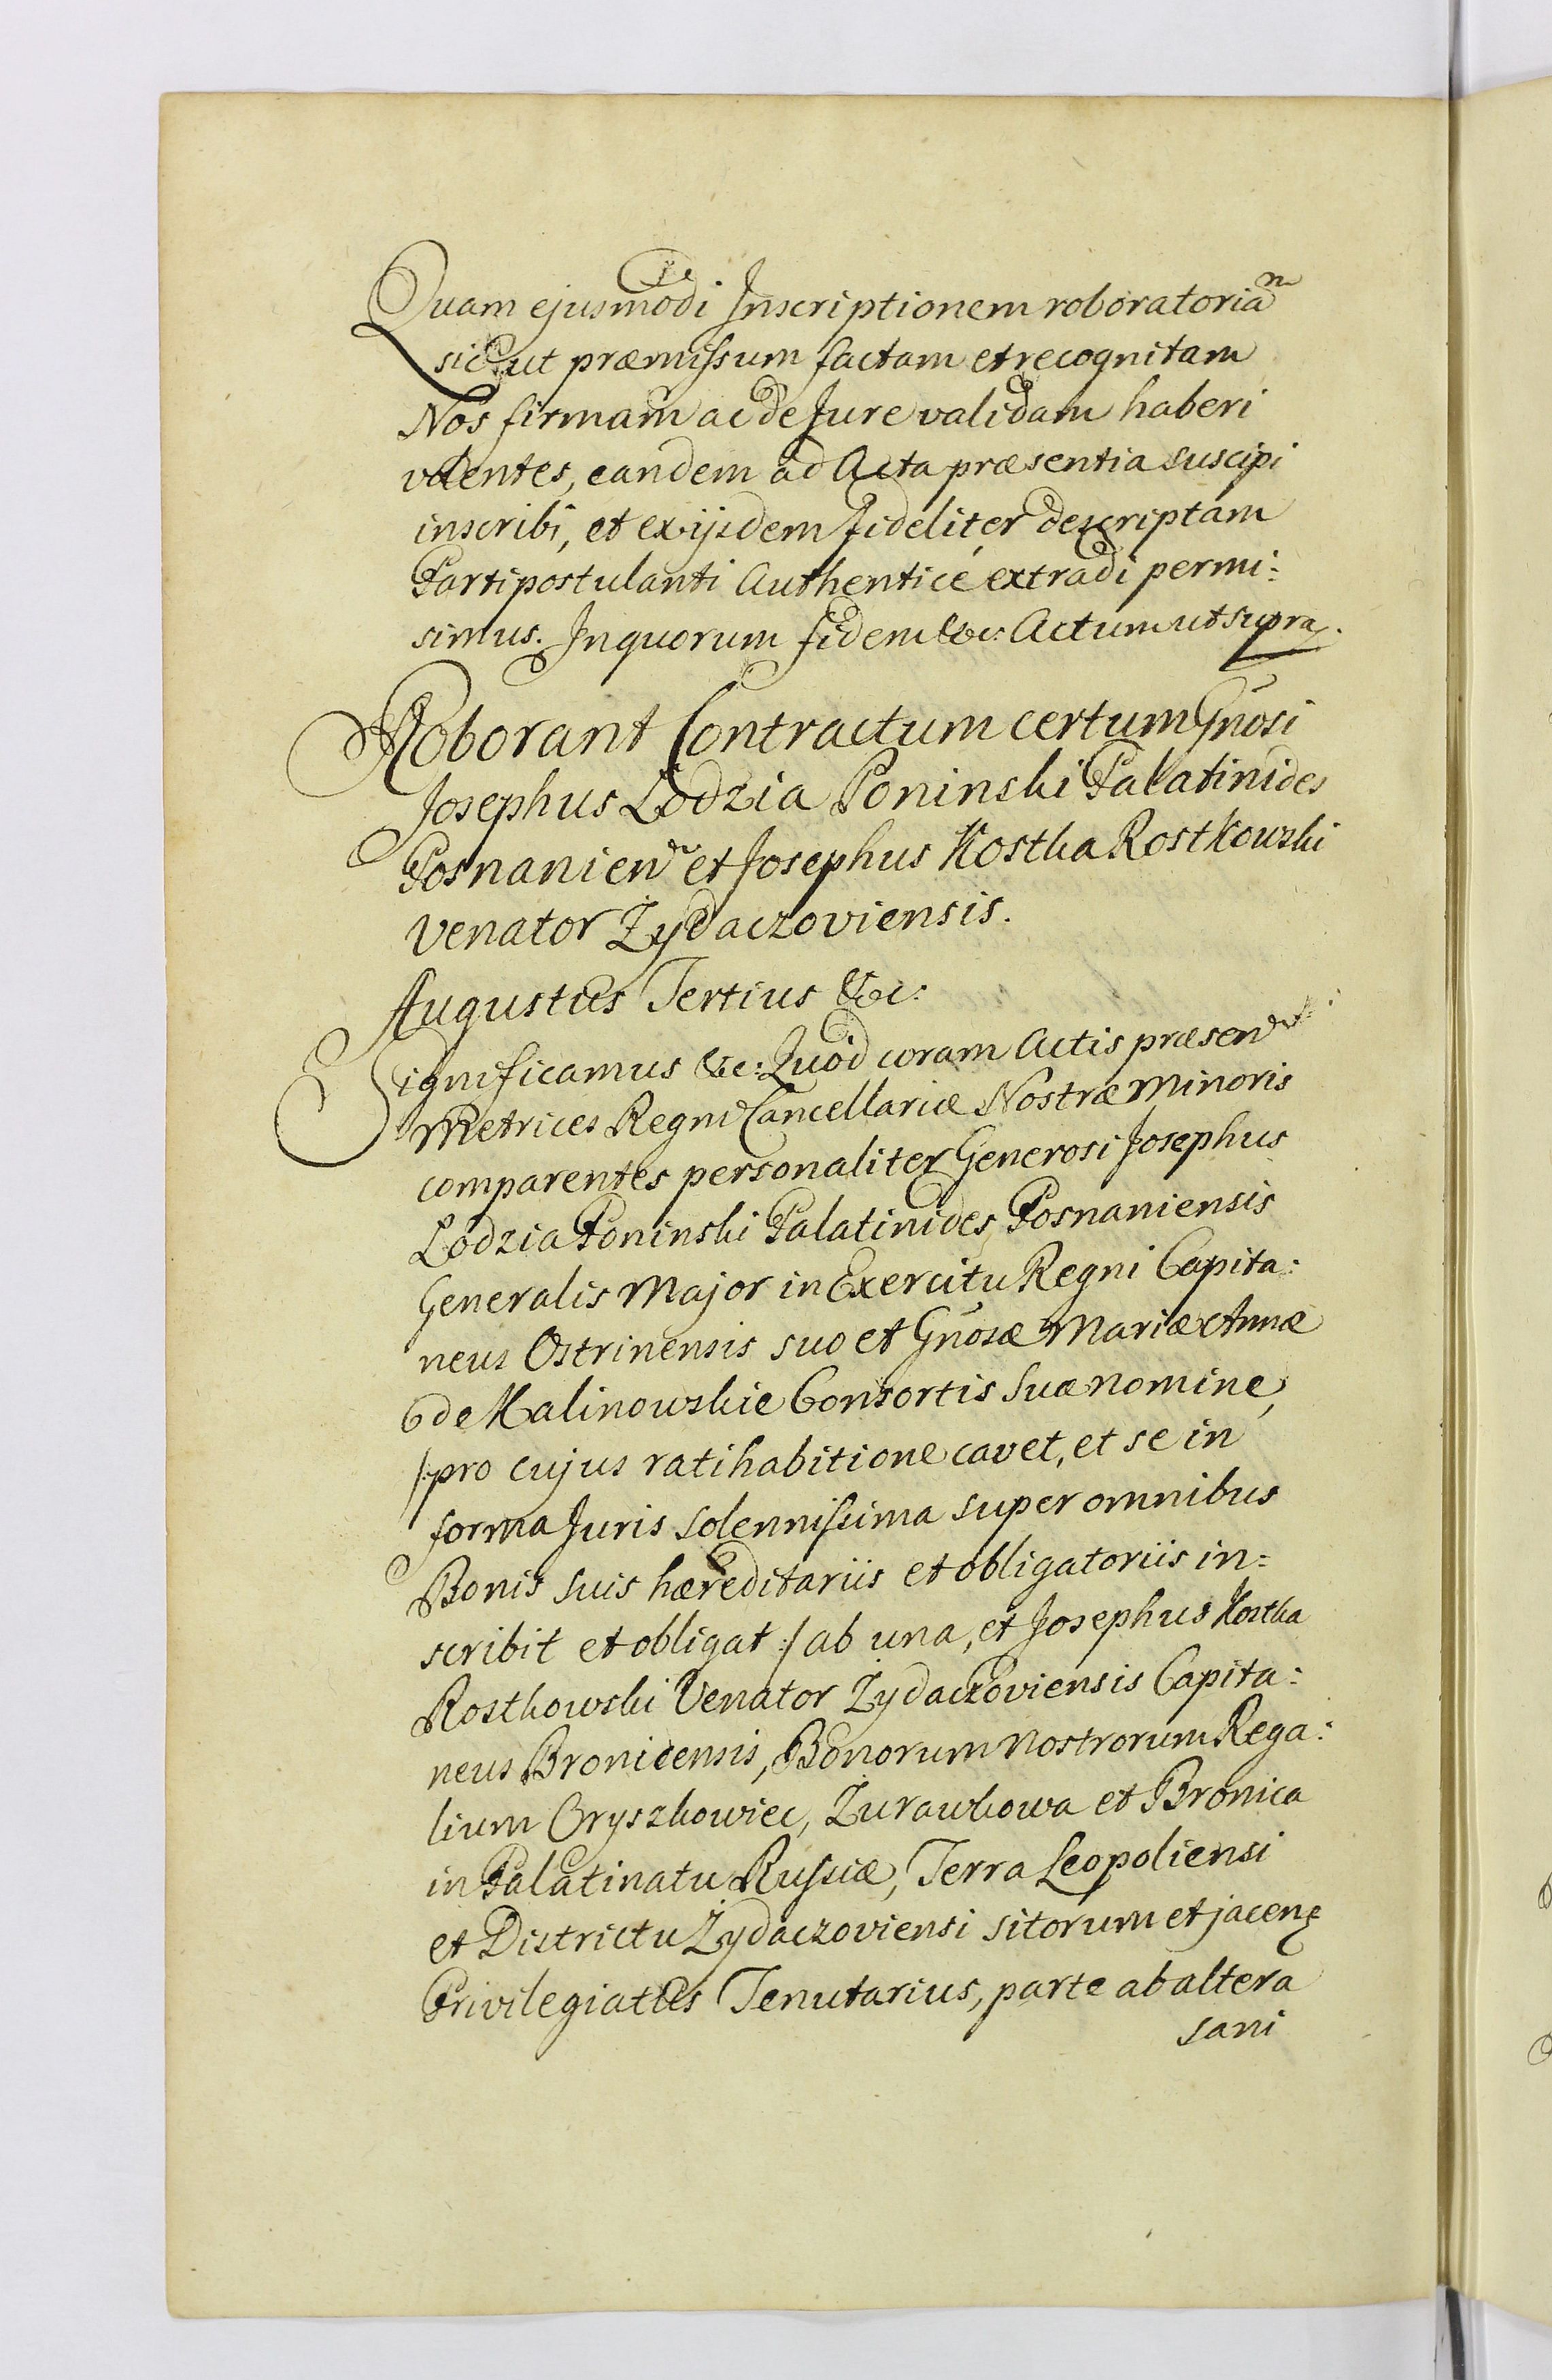 Quam ejusmodi Inscriptionem roboratoriam
sic ut præmissum factam et recognitam
Nos firmam ac de Jure validam haberi
volentes, eandem ad Acta præsentia suscipi
inscribi, et ex ijsdem fideliter descriptam
Parti postulanti Authenticé extradi permi:
simus. In quorum fidem &c: Actum ut supra.
Roborant Contractum certum Gnosi
Josephus Lodzia Poninski Palatinides
Posnanien et Josephus Kostka Rostkowski
Venator Zydaczoviensis.
Augustus Tertius &c:
Significamus &c: Quod coram Actis præsen
Metrices Regni Cancellariæ Nostræ Minoris
comparentes personaliter Generosi Josephus
Lodzia Poninski Palatinides Posnaniensis
Generalis Major in Exercitu Regni Capita:
neus Ostrinensis suo et Gnosæ Mariæ Annæ
de Kalinowskie Consortis Suæ nomine,
/:pro cujus ratihabitione cavet, et se in
forma Juris solennissima super omnibus
Bonis suis hæreditariis et obligatoriis in=
scribit et obligat :/ ab una, et Josephus Kostka
Rostkowski Venator Zydaczoviensis Capita:
neus Bronicensis, Bonorum Nostrorum Rega:
lium Oryszkowiec, Zurawkowa et Bronica
in Palatinatu Russiæ, Terra Leopoliensi
et Districtu Zydaczoviensi sitorum et jacen
Privilegiatus Tenutarius, parte ab altera
sani